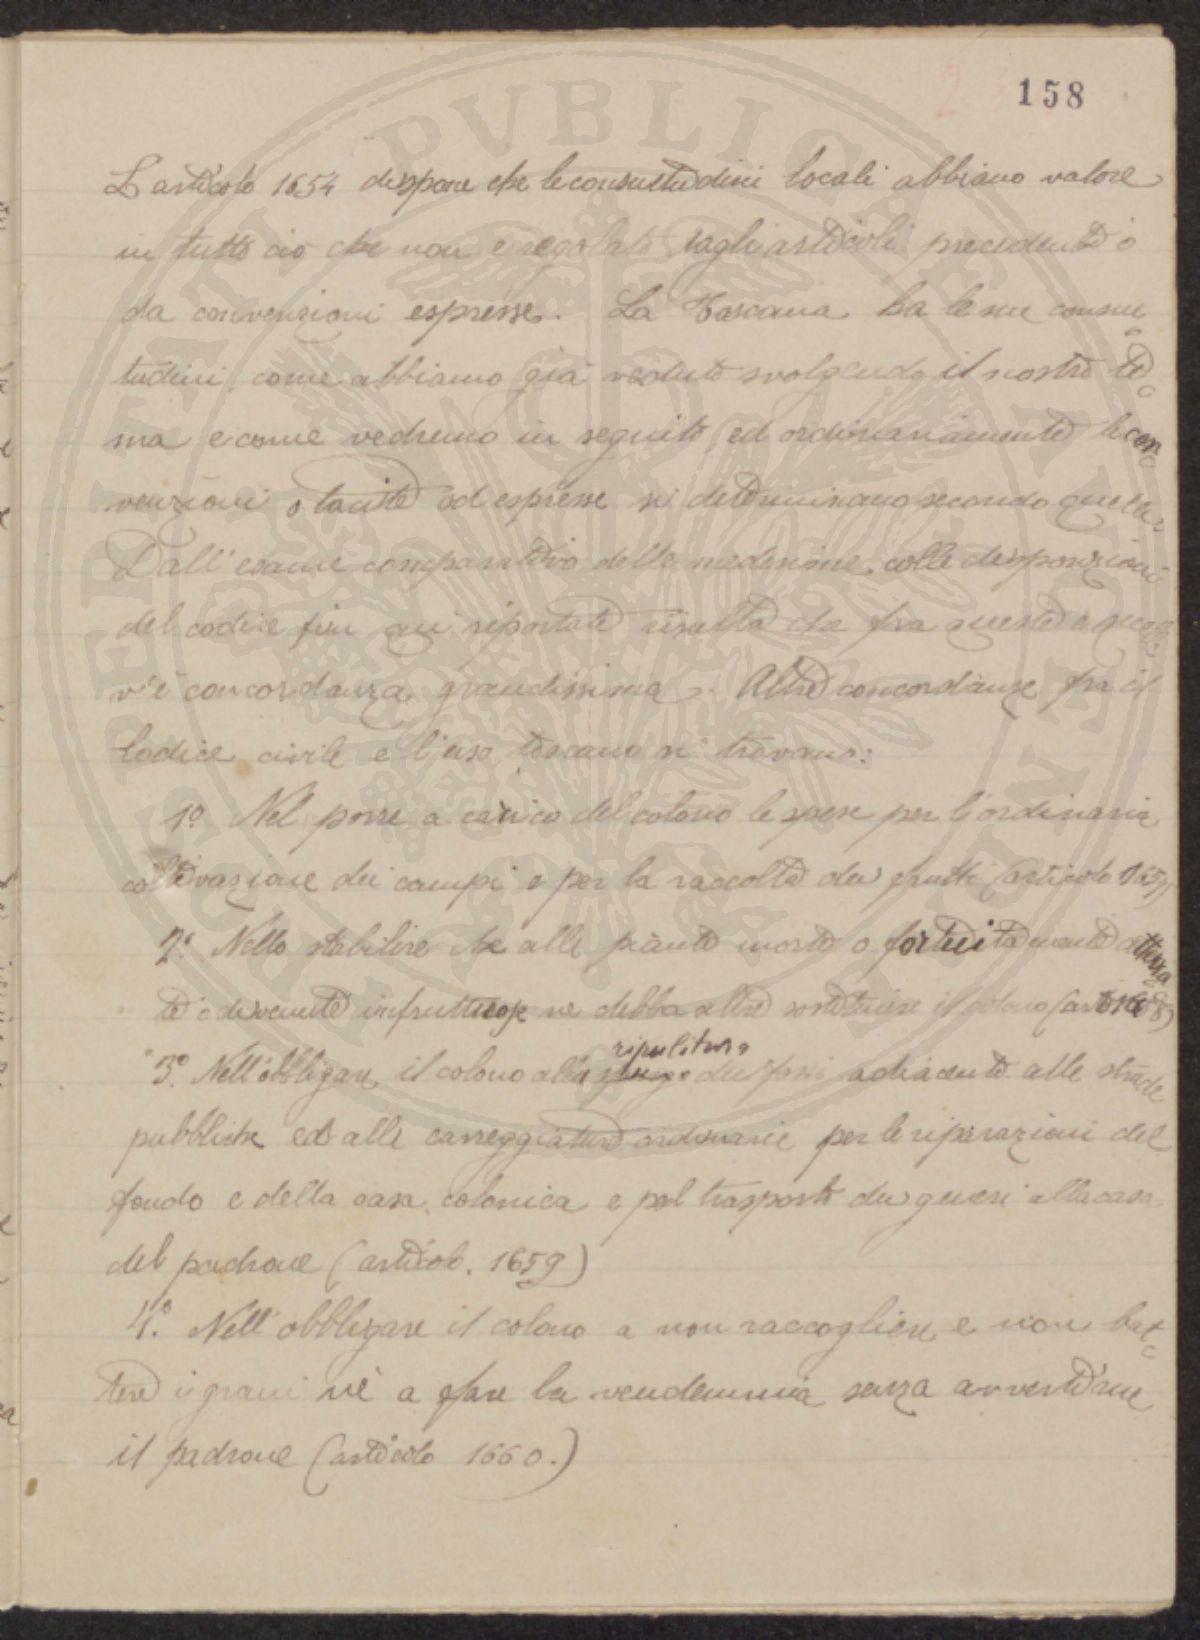 158
L'articolo 1654 dispone che le consuetudini locali abbiano valore
in tutto ciò che non è regolato dagli articoli precedenti o
da convenzioni espresse. La Toscana ha le sue consue
tudini, come abbiamo già veduto svolgendo il nostro te
ma e come vedremo in seguito, ed ordinariamente le con
venzioni o tacite od espresse si determinano secondo quelle.
Dall'esame comparativo delle medesime colle disposizioni
del codice fin qui riportate risulta che fra queste e quelle
v'è concordanza grandissima. Altre concordanze fra il
Codice civile e l'uso toscano si trovano:
1º. Nel porre a carico del colono le spese per l'ordinaria
coltivazione dei campi e per la raccolta dei frutti (articolo 1657)
2º. Nello stabilire che alle piante morte o fortuitamente atterra
te o divenute infruttuose ne debba altre sostituire il colono (art. 1658)
3º. Nell'obbligare il colono alla ripulitura dei fossi adiacenti alle strade
pubbliche ed alle carreggiature ordinarie per le riparazioni del
fondo e della casa colonica e pel trasporto dei generi alla casa
del padrone (articolo. 1659)
4º. Nell'obbligare il colono a non raccogliere e non bat
tere i grani nè a fare la vendemmia senza avvertirne
il padrone (articolo 1660.)
PVBLICAE